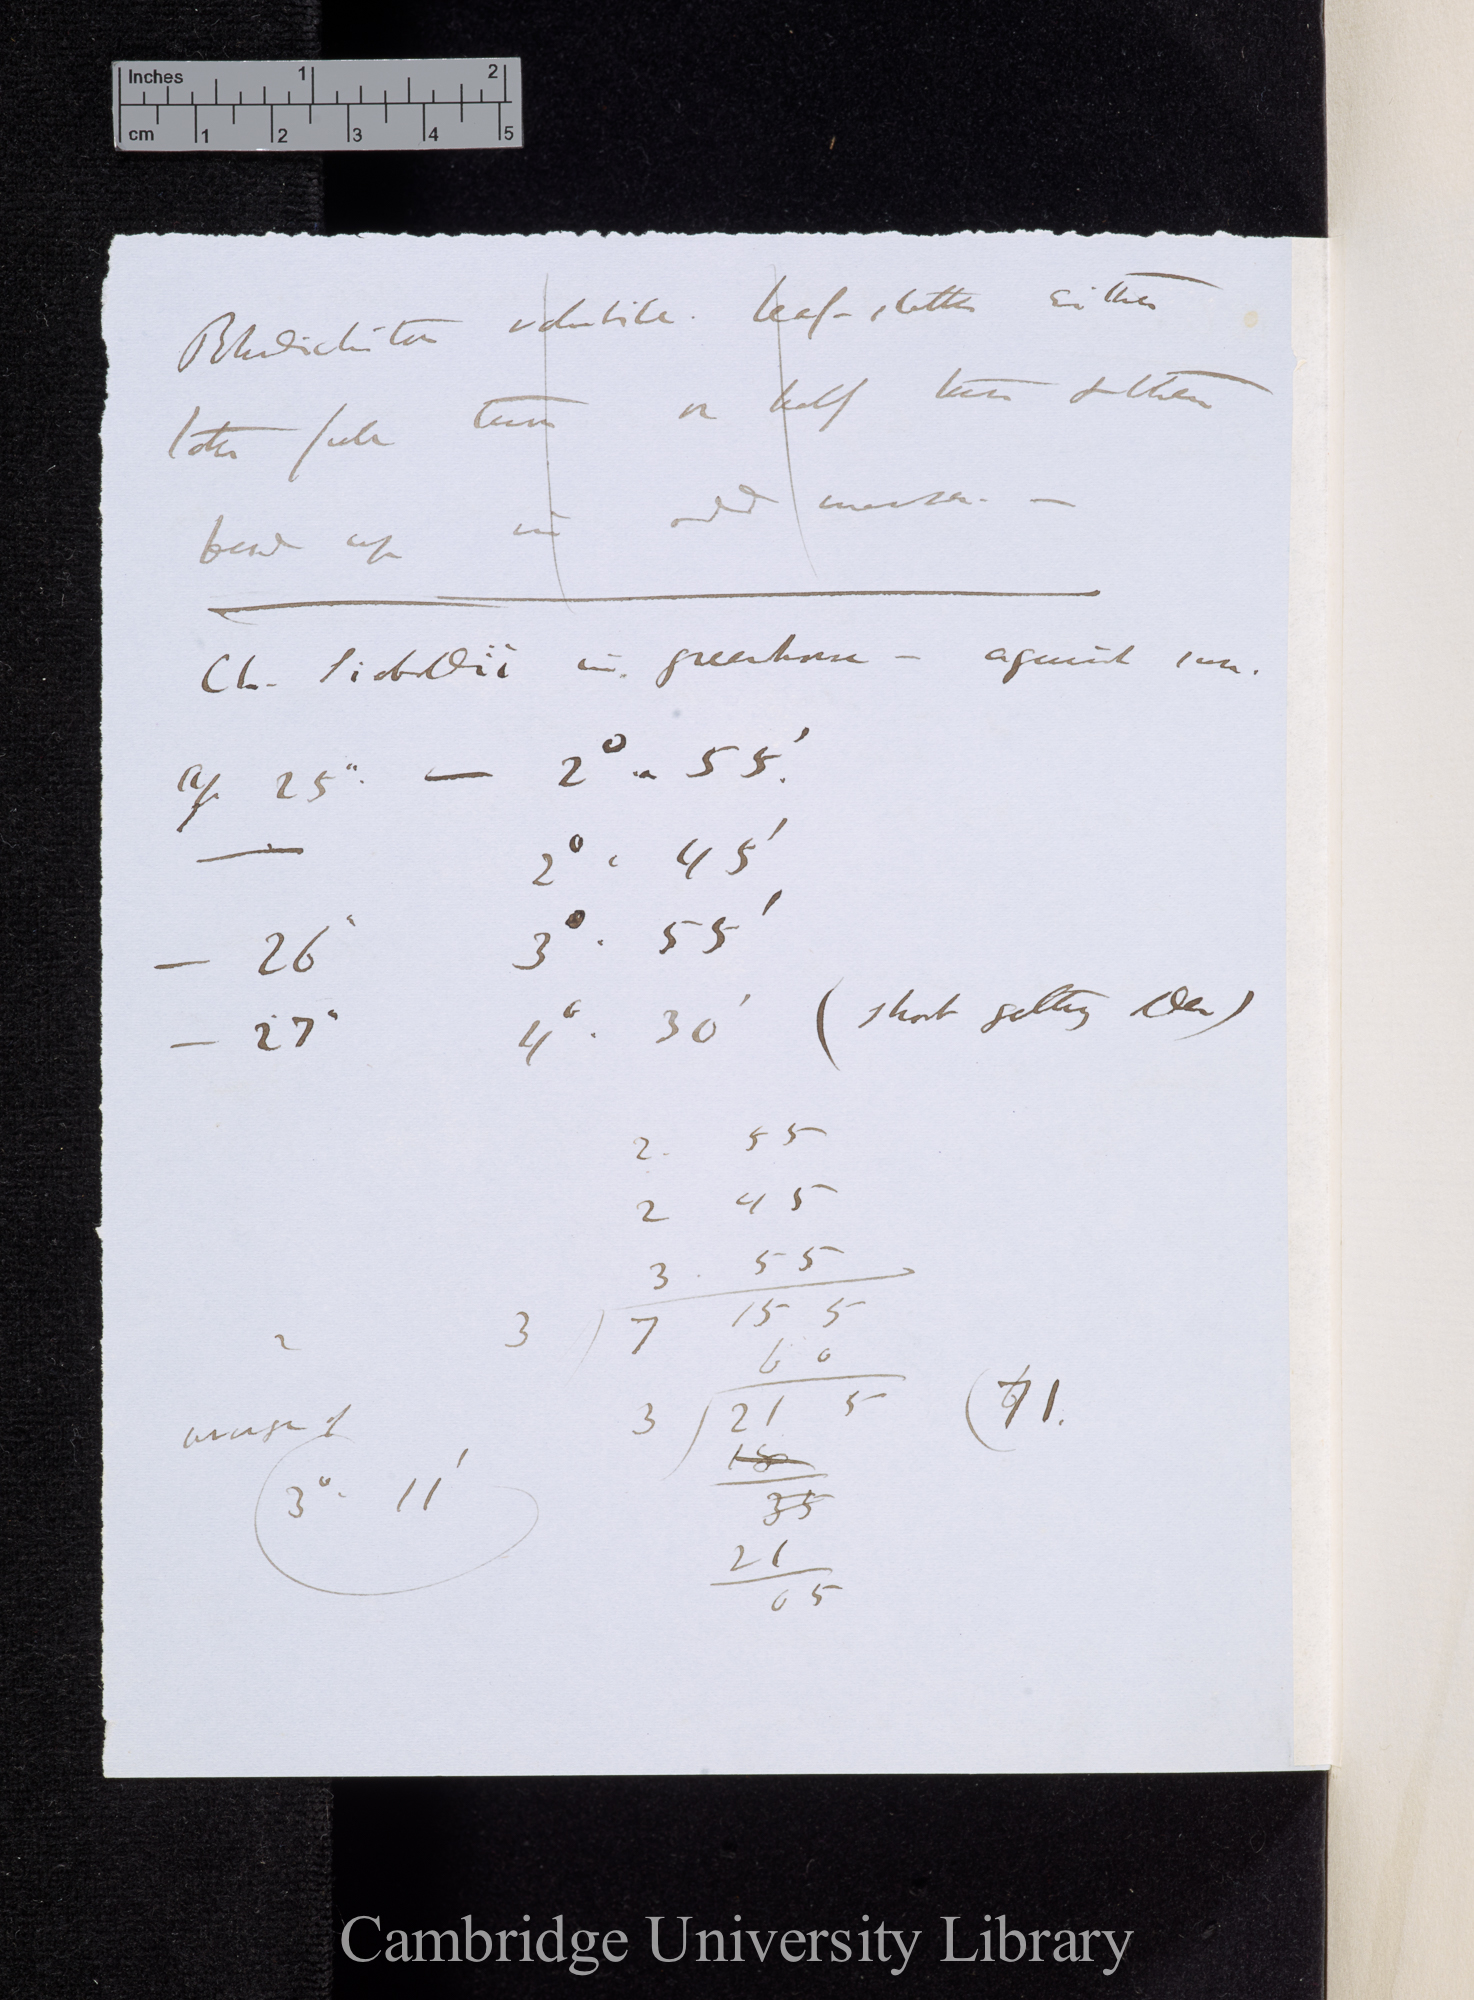 Inches 1 2
cm 1 2 3 4 5
volubile. leaf-stalks either
take full turn or half turn & then
bend up in odd manner. —
Cl. Sieboldii in greenhouse — against sun.
Ap 25" — 2° . 55'
— 2° . 45'
— 26" 3° . 55'
— 27" 4° . 30' (shoot getting old)
2. 55
2 45
3. 55
3 ) 7 155
60
3 ) 215 (71.
18
35
21
05
average of
3° . 11'
Cambridge University Library